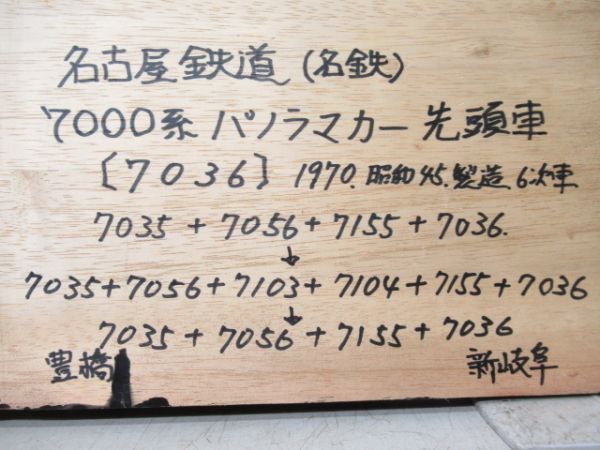 名古屋鉄道 (名鉄)
7000系 パノラマカー 先頭車
〔7036〕 1970. 昭和45. 製造 6次車
7035 + 7056 + 7155 + 7036.
↓
7035 + 7056 + 7103 + 7104 + 7155 + 7036
↓
7035 + 7056 + 7155 + 7036
豊橋 新岐阜